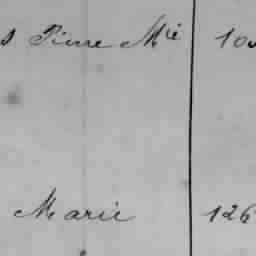 s Pierre Mie 10
Marie 126